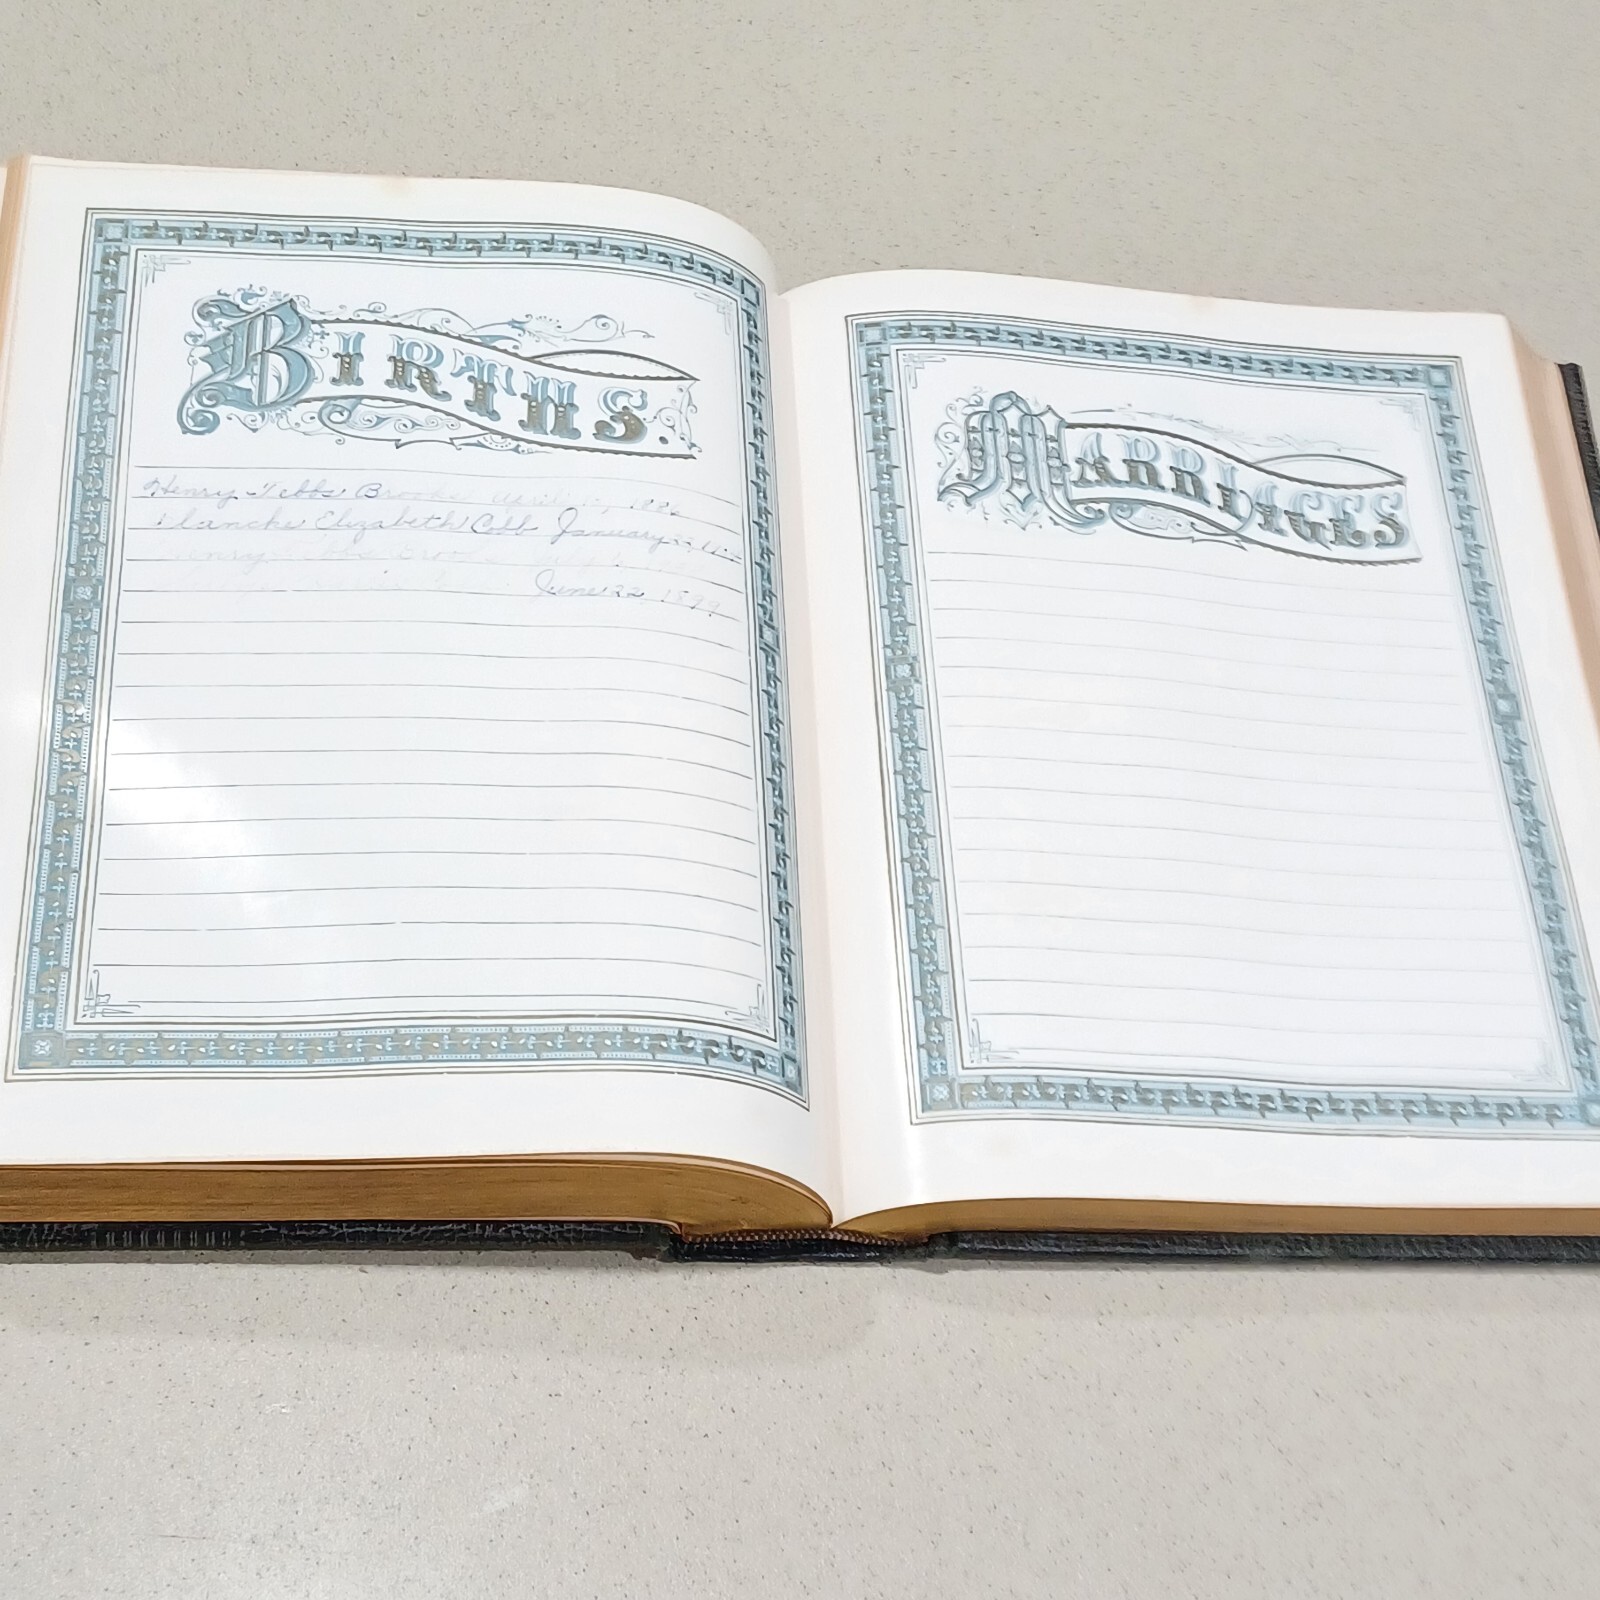 BIRTHS.
Henry Tebbs Brooks April 1886
Blanche Elizabeth Cobb January
Henry Tebbs Brooks
June 22, 1899
MARRIAGES